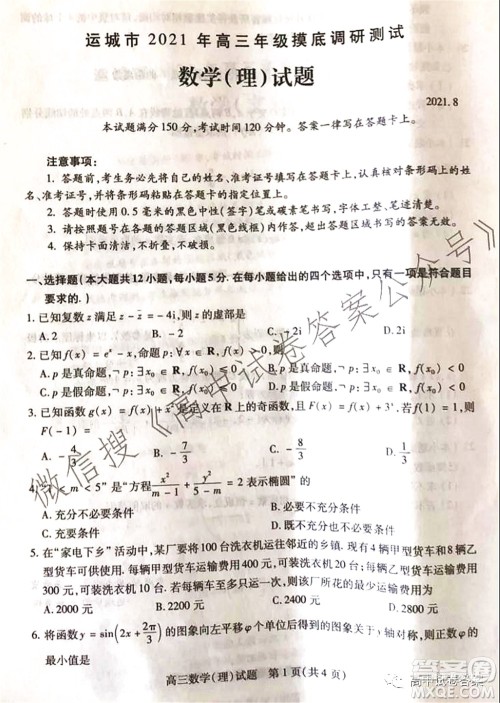 运城市 2021 年高三年级摸底调研测试
数学(理)试题
2021.8
本试题满分150分,考试时间120分钟。答案一律写在答题卡上。
注意事项:
1. 答题前,考生务必先将自己的姓名、准考证号填写在答题卡上,认真核对条形码上的姓
名、准考证号,并将条形码粘贴在答题卡的指定位置上。
2. 答题时使用0.5毫米的黑色中性(签字)笔或碳素笔书写,字体工整、笔迹清楚。
3. 请按照题号在各题的答题区域(黑色线框)内作答,超出答题区域书写的答案无效。
4. 保持卡面清洁,不折叠,不破损。
一、选择题(本大题共12小题,每小题5分.在每小题给出的四个选项中,只有一项是符合题目
要求的.)
1. 已知复数 z 满足 z - z̄ = -4i,则 z 的虚部是
A. 2 B. -2 C. -2i D. 2i
2. 已知 f(x) = eˣ - x,命题 p: ∀x ∈ R, f(x) > 0,则
A. p 是真命题,¬p: ∃x₀ ∈ R, f(x₀) < 0 B. p 是真命题,¬p: ∃x₀ ∈ R, f(x₀) ≤ 0
C. p 是假命题,¬p: ∃x₀ ∈ R, f(x₀) < 0 D. p 是假命题,¬p: ∃x₀ ∈ R, f(x₀) ≤ 0
3. 已知函数 g(x) = f(x) + 是定义在 R 上的奇函数,且 F(x) = f(x) + 3ˣ. 若 f(1) = 1,则
F(-1) =
A. -4/3 B. C. -8/3 D. 1/3
4. m < 5" 是 "方程 x²/(m-1) + y²/(5-m) = 2 表示椭圆" 的
A. 充分不必要条件 B. 必要不充分条件
C. 充要条件 D. 既不充分也不必要条件
5. 在"家电下乡"活动中,某厂要将100台洗衣机运往邻近的乡镇.现有4辆甲型货车和8辆乙
型货车可供使用.每辆甲型货车运输费用400元,可装洗衣机20台;每辆乙型货车运输费用
300元,可装洗衣机10台.若每辆车至多只运一次,则该厂所花的最少运输费用为
A. 2000 元 B. 2200 元 C. 2400 元 D. 2800 元
6. 将函数 y = sin(2x + 2π/3) 的图象向左平移 φ 个单位后得到的图象关于 y 轴对称,则正数 φ 的
最小值是
高三数学(理)试题 第1页(共4页)
微信搜《高中试卷答案公众号》
高中试卷答案
答案圈
MXQE.COM